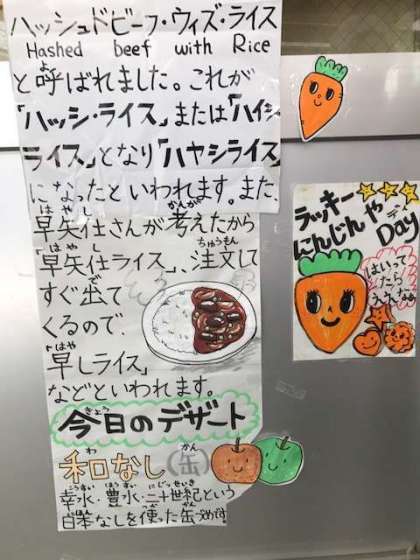 ハッシュドビーフ・ウィズ・ライス
Hashed beef with Rice
と呼ばれました。これが
「ハッシ・ライス」または「ハイシ
ライス」となり「ハヤシライス」
になったといわれます。また、
早矢仕さんが考えたから
「早矢仕ライス」、注文して
すぐ出て
くるので
「早しライス」
などといわれます。
今日のデザート
和なし(缶)
幸水・豊水・二十世紀という
日本なしを使った缶づめです
ラッキー
にんじんや
Day
はいって
たら
ええなぁ